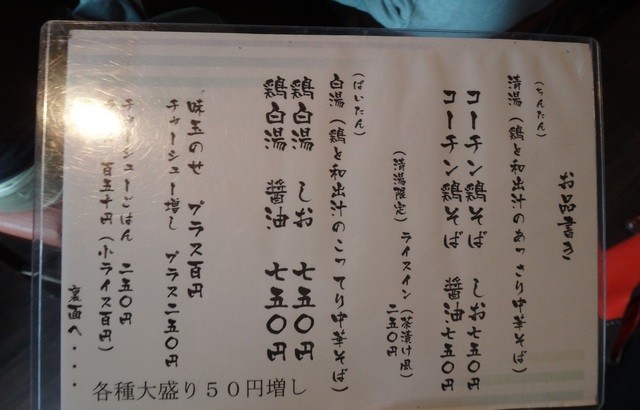 お品書き
(ちんたん)
清湯(鶏と和出汁のあっさり中華そば)
コーチン鶏そば しお七五〇円
コーチン鶏そば 醤油七五〇円
(清湯限定)ライスイン(茶漬け風)
二五〇円
(ぱいたん)
白湯(鶏と和出汁のこってり中華そば)
鶏白湯 しお 七五〇円
鶏白湯 醤油 七五〇円
味玉のせ プラス百円
チャーシュー増し プラス二五〇円
チャーシューごはん 二五〇円
百五十円(小ライス百円)
裏面へ・・・
各種大盛り50円増し